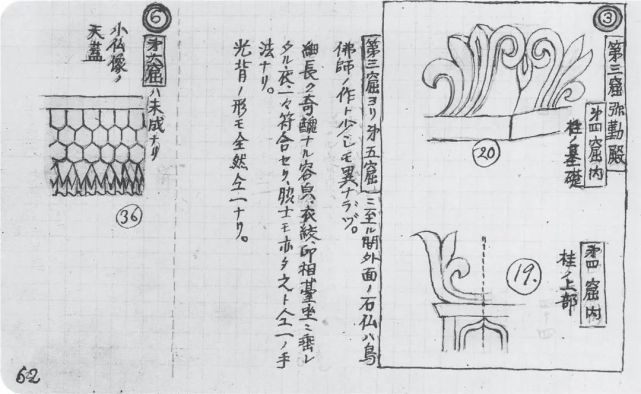 ③
第三窟弥勒殿
第四窟内
柱ノ基礎
20
第四窟内
柱ノ上部
19.
第三窟ヨリ第五窟ニ至ル間外面ノ石仏ハ鳥
佛師ノ作ト少シモ異ナラヅ。
細長ク奇醜ナル容貌、衣紋、印相臺座ニ垂レ
タル衣、一々符合セリ、脇士モホタ之ト仝一ノ手
法ナリ。
光背ノ形モ全然仝一ナリ。
⑥
第六窟ハ未成ナリ
小仏像ノ
天蓋
36
62